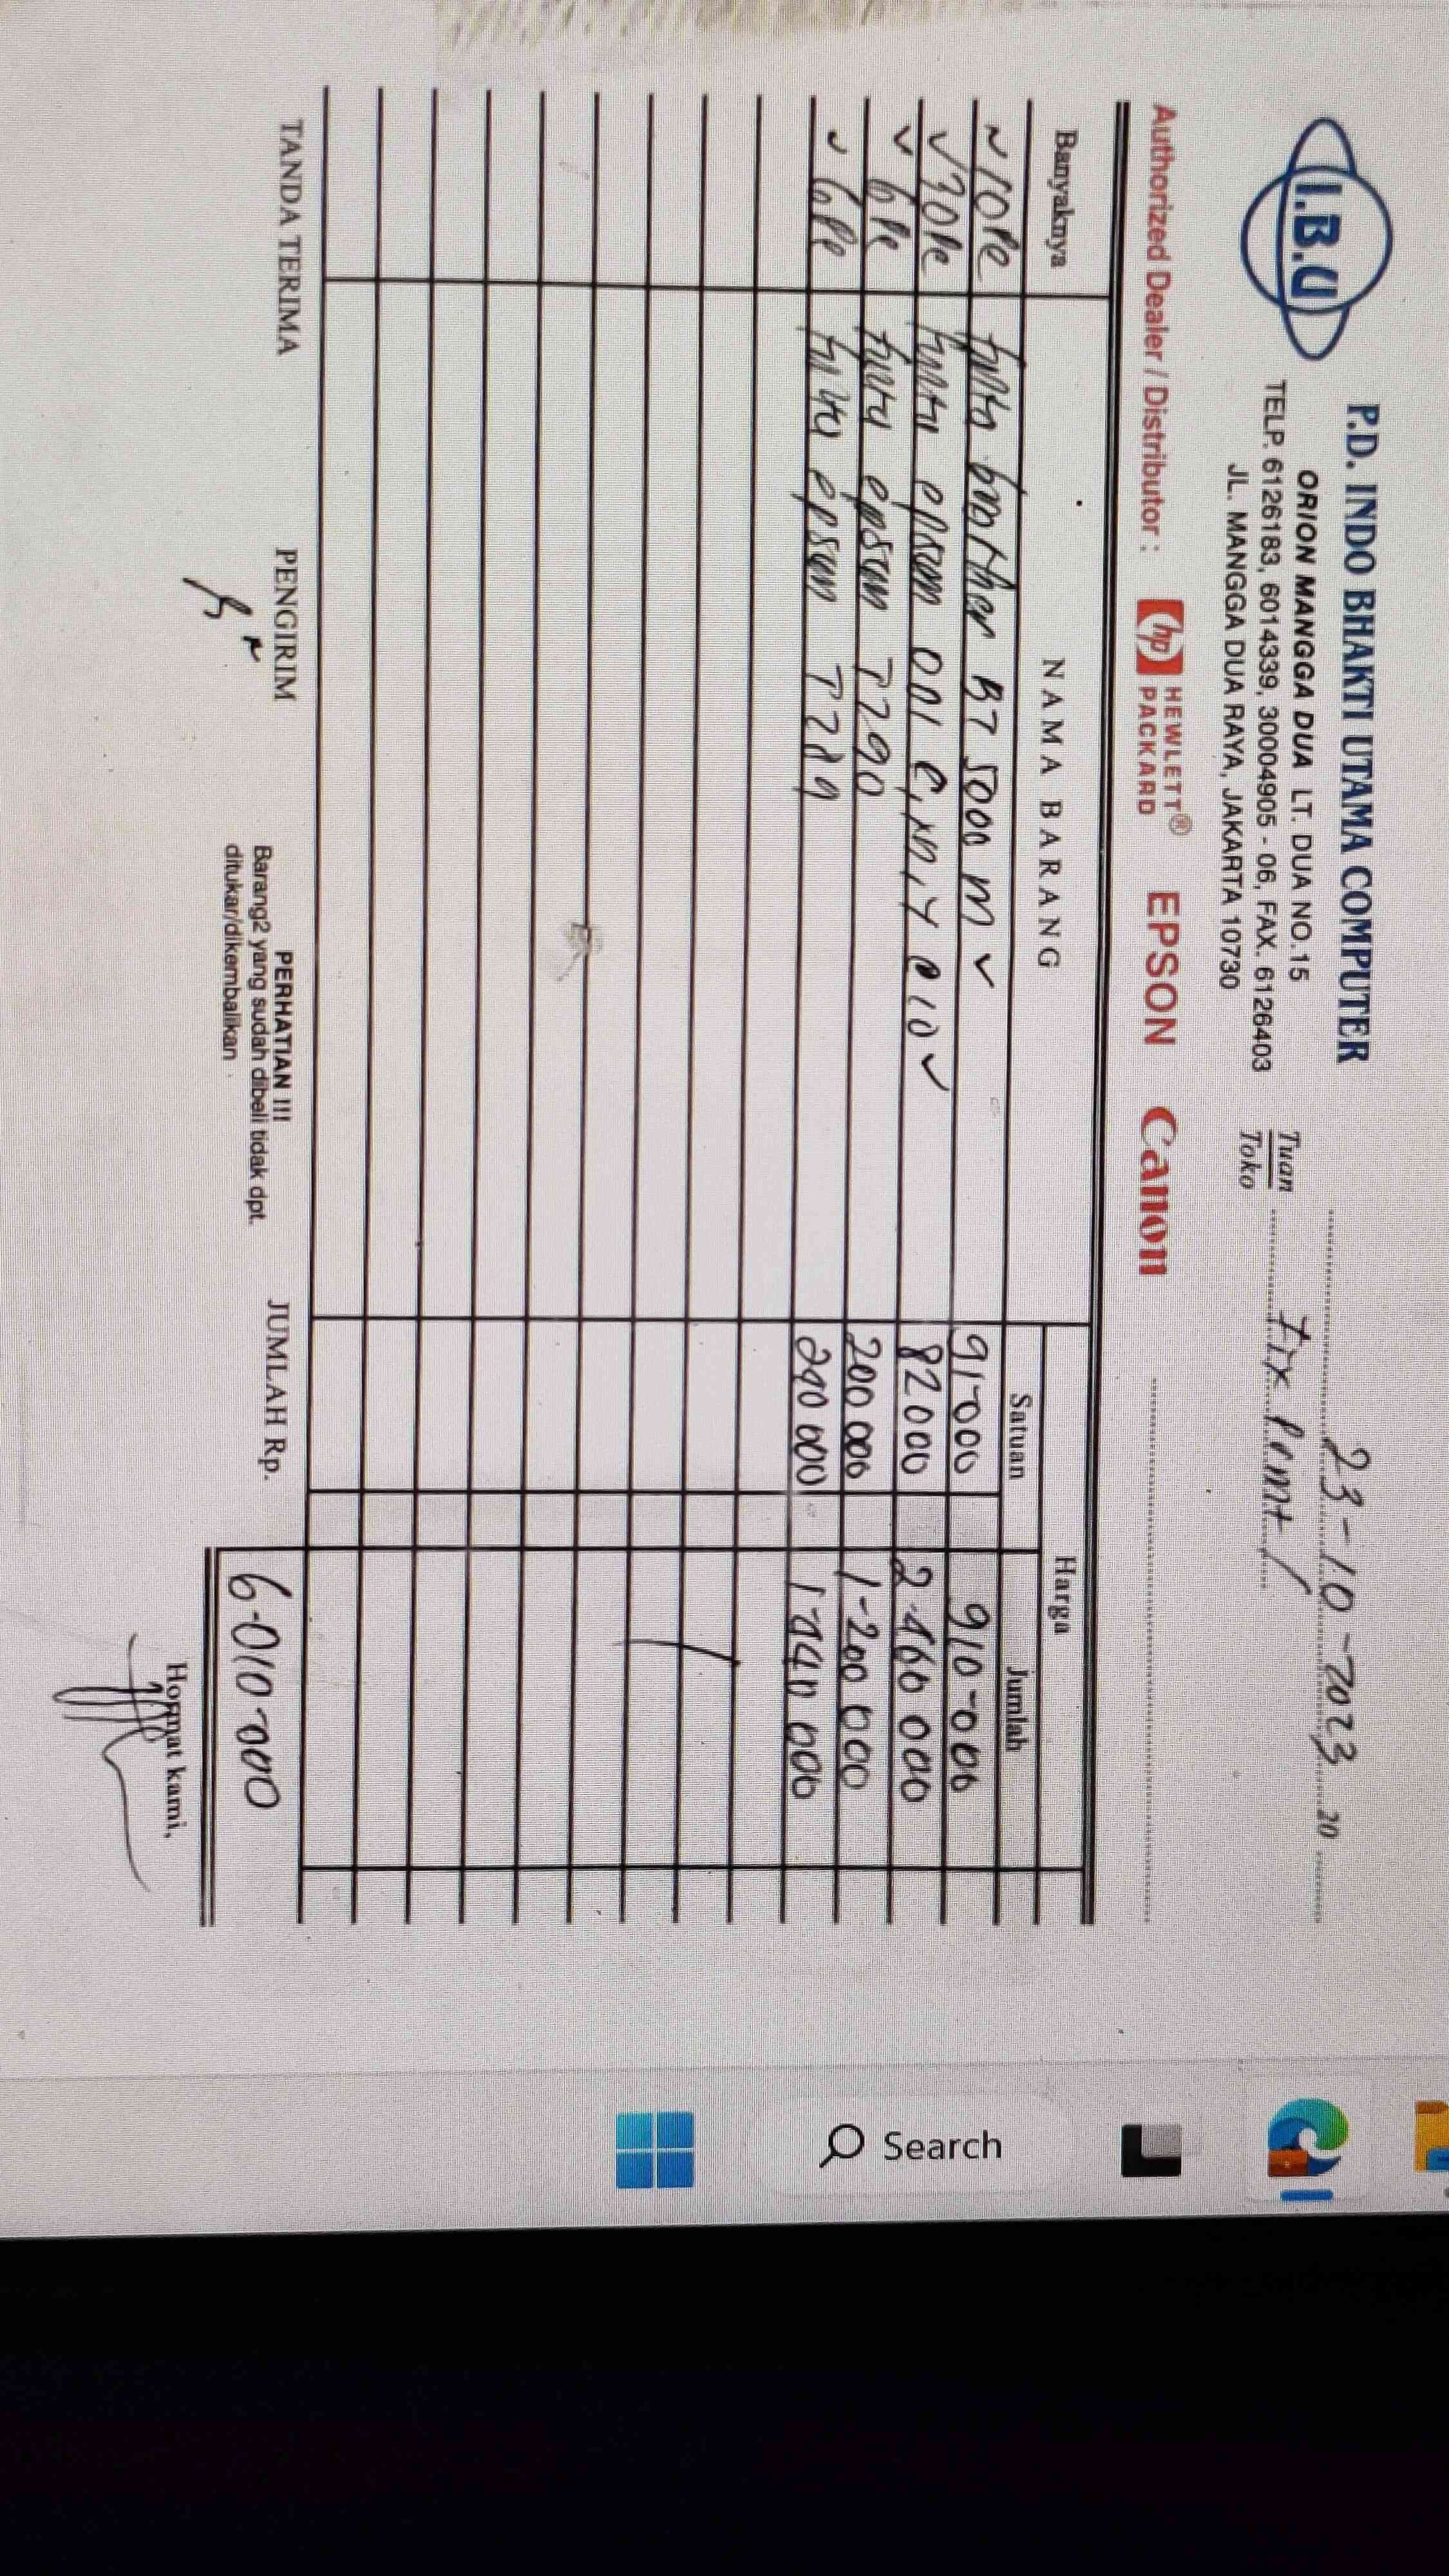 I.B.U
P.D. INDO BHAKTI UTAMA COMPUTER
ORION MANGGA DUA LT. DUA NO.15
TELP. 6126183, 6014339, 30004905 - 06, FAX. 6126403
JL. MANGGA DUA RAYA, JAKARTA 10730
23-10-2023 20
Tuan
Toko
Authorized Dealer / Distributor : hp HEWLETT® PACKARD EPSON Canon
Banyaknya NAMA BARANG Harga
Satuan Jumlah
10 Pc brother BT 5000 M 91-000 910-000
30 Pc epson 001 82 000 2-460 000
6 Pc epson T290 200 000 1-200 000
6 Pc epson T289 240 000 1 440 000
TANDA TERIMA PENGIRIM JUMLAH Rp. 6-010-000
PERHATIAN !!!
Barang2 yang sudah dibeli tidak dpt.
ditukar/dikembalikan
Hormat kami,
Search